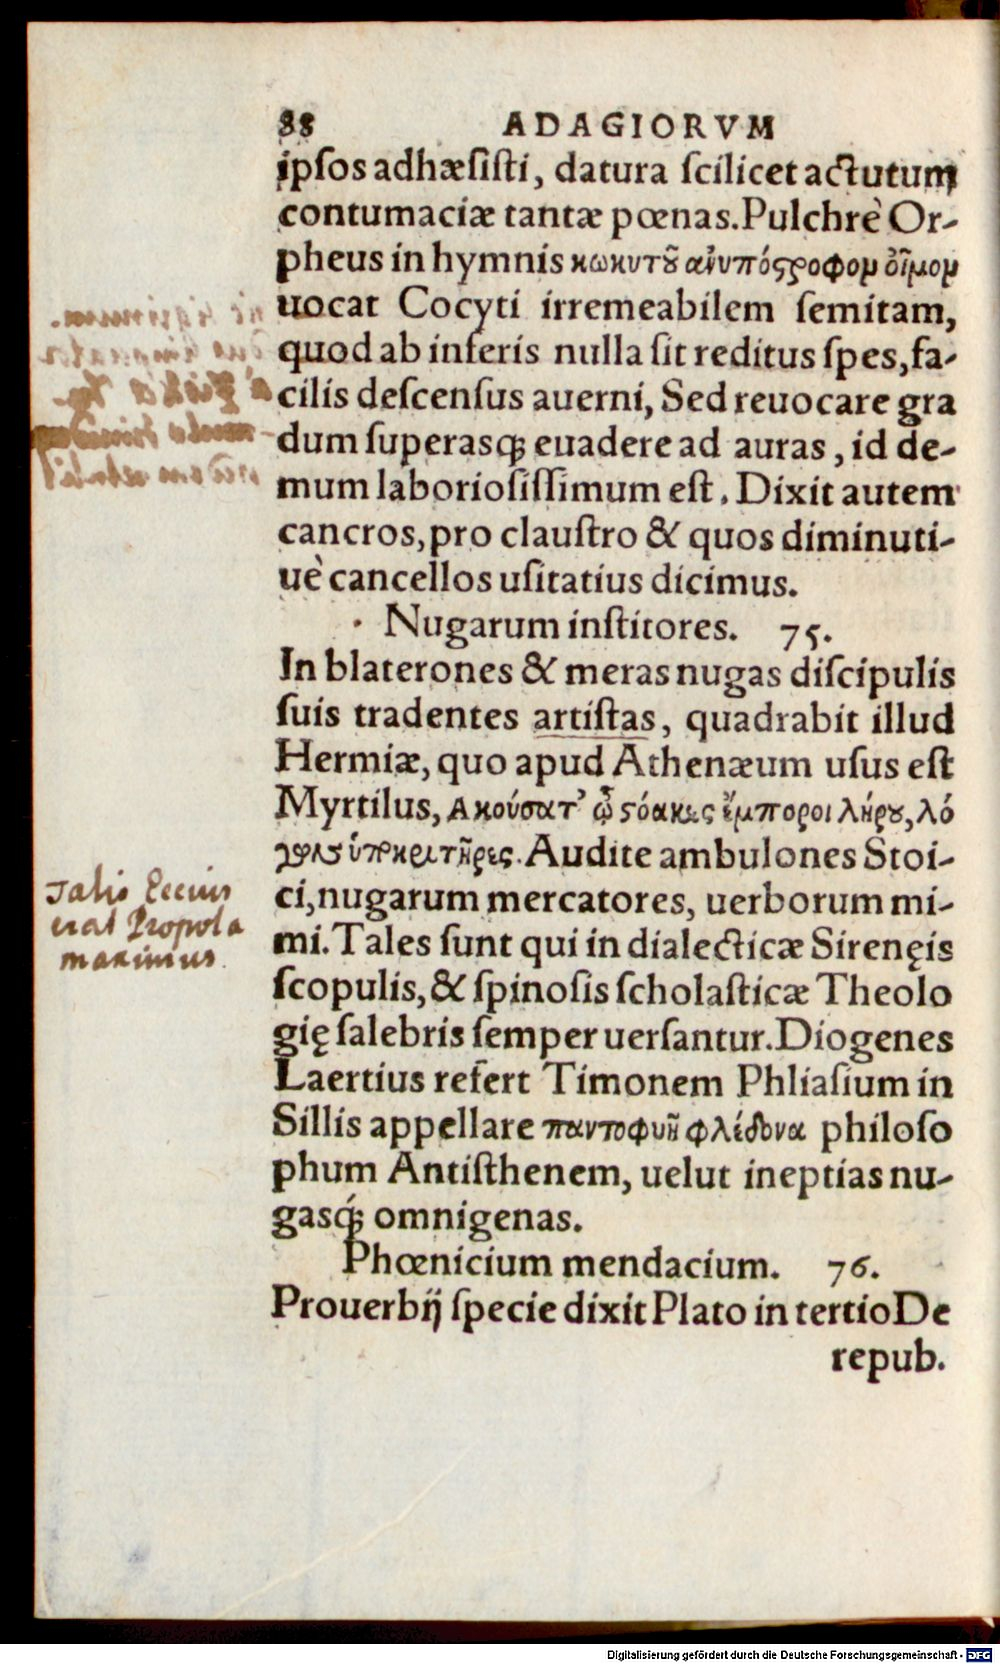 88 ADAGIORVM
ipsos adhæsisti, datura scilicet actutum
contumaciæ tantæ pœnas. Pulchrè Or-
pheus in hymnis κωκυτοῦ ἀνυπόςροφομ οἶμομ
uocat Cocyti irremeabilem semitam,
quod ab inferis nulla sit reditus spes, fa-
cilis descensus auerni, Sed reuocare gra
dum superasq; euadere ad auras, id de-
mum laboriosissimum est. Dixit autem
cancros, pro claustro & quos diminuti-
uè cancellos usitatius dicimus.
Nugarum institores. 75.
In blaterones & meras nugas discipulis
suis tradentes artistas, quadrabit illud
Hermiæ, quo apud Athenæum usus est
Myrtilus, Ακούσατ' ὦ ϛόακες ἔμποροι λήρου, λό
γων ὑποκριτῆρες. Audite ambulones Stoi-
ci, nugarum mercatores, uerborum mi-
mi. Tales sunt qui in dialecticæ Sirenęis
scopulis, & spinosis scholasticæ Theolo
gię salebris semper uersantur. Diogenes
Laertius refert Timonem Phliasium in
Sillis appellare παντοφυῆ φλέδονα philoso
phum Antisthenem, uelut ineptias nu-
gasq́; omnigenas.
Phœnicium mendacium. 76.
Prouerbij specie dixit Plato in tertio De
repub.
Talis Eccius
erat Propola
maximus.
Digitalisierung gefördert durch die Deutsche Forschungsgemeinschaft - DFG